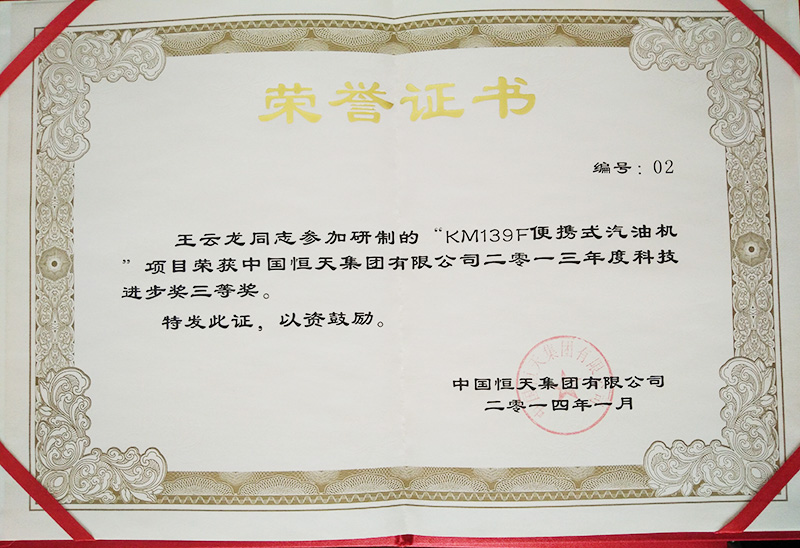 荣誉证书
编号：02
王云龙同志参加研制的“KM139F便携式汽油机
”项目荣获中国恒天集团有限公司二零一三年度科技
进步奖三等奖。
特发此证，以资鼓励。
中国恒天集团有限公司
二零一四年一月